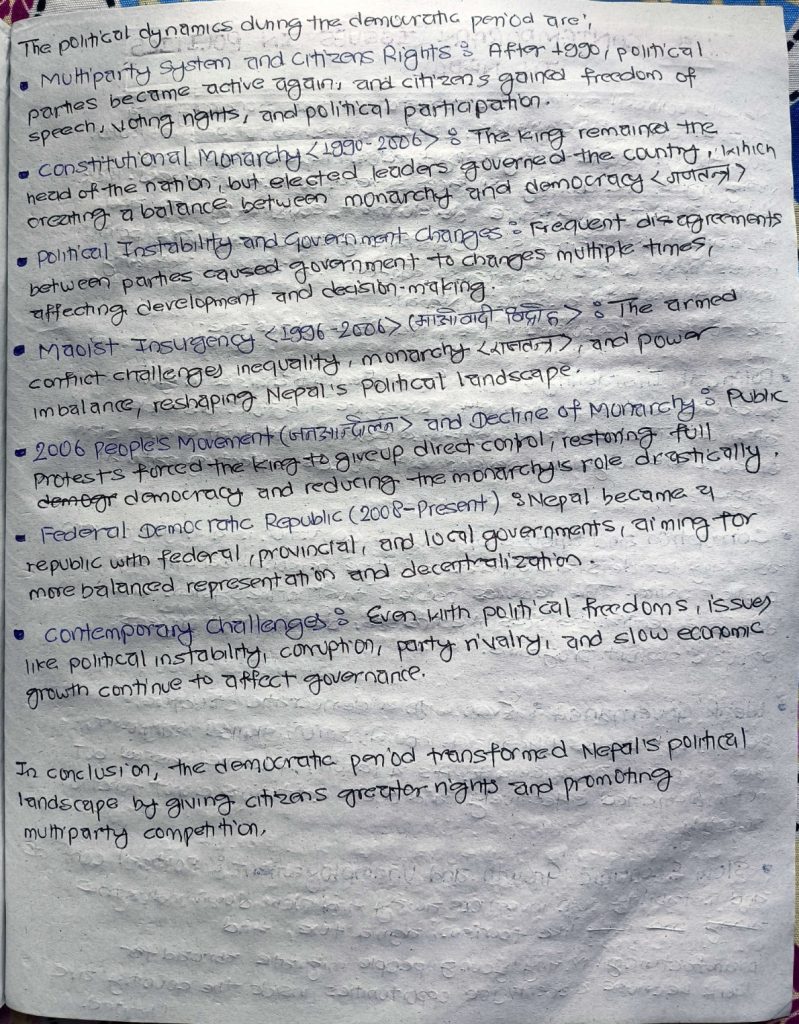 The political dynamics during the democratic period are',
• Multiparty System and Citizens Rights : After 1990, political
parties became active again, and citizens gained freedom of
speech, voting rights, and political participation.
• Constitutional Monarchy <1990-2006> : The king remained the
head of the nation, but elected leaders governed the country, which
creating a balance between monarchy and democracy <गणतन्त्र>
• Political Instability and Government Changes : Frequent disagreements
between parties caused government to changes multiple times,
affecting development and decision-making.
• Maoist Insurgency <1996-2006> (माओवादी विद्रोह> : The armed
conflict challenges inequality, monarchy <राजतन्त्र>, and power
imbalance, reshaping Nepal's Political landscape.
• 2006 People's Movement (जनआन्दोलन> and Decline of Monarchy : Public
Protests forced the king to giveup direct control, restoring full
democracy and reducing the monarchy's role drastically.
• Federal Democratic Republic (2008-Present) : Nepal became a
republic with federal, provincial, and local governments, aiming for
more balanced representation and decentralization.
• Contemporary Challenges : Even with political freedoms, issues
like political instability, corruption, party rivalry, and slow economic
growth continue to affect governance.
In conclusion, the democratic period transformed Nepal's political
landscape by giving citizens greater rights and promoting
multiparty competition.